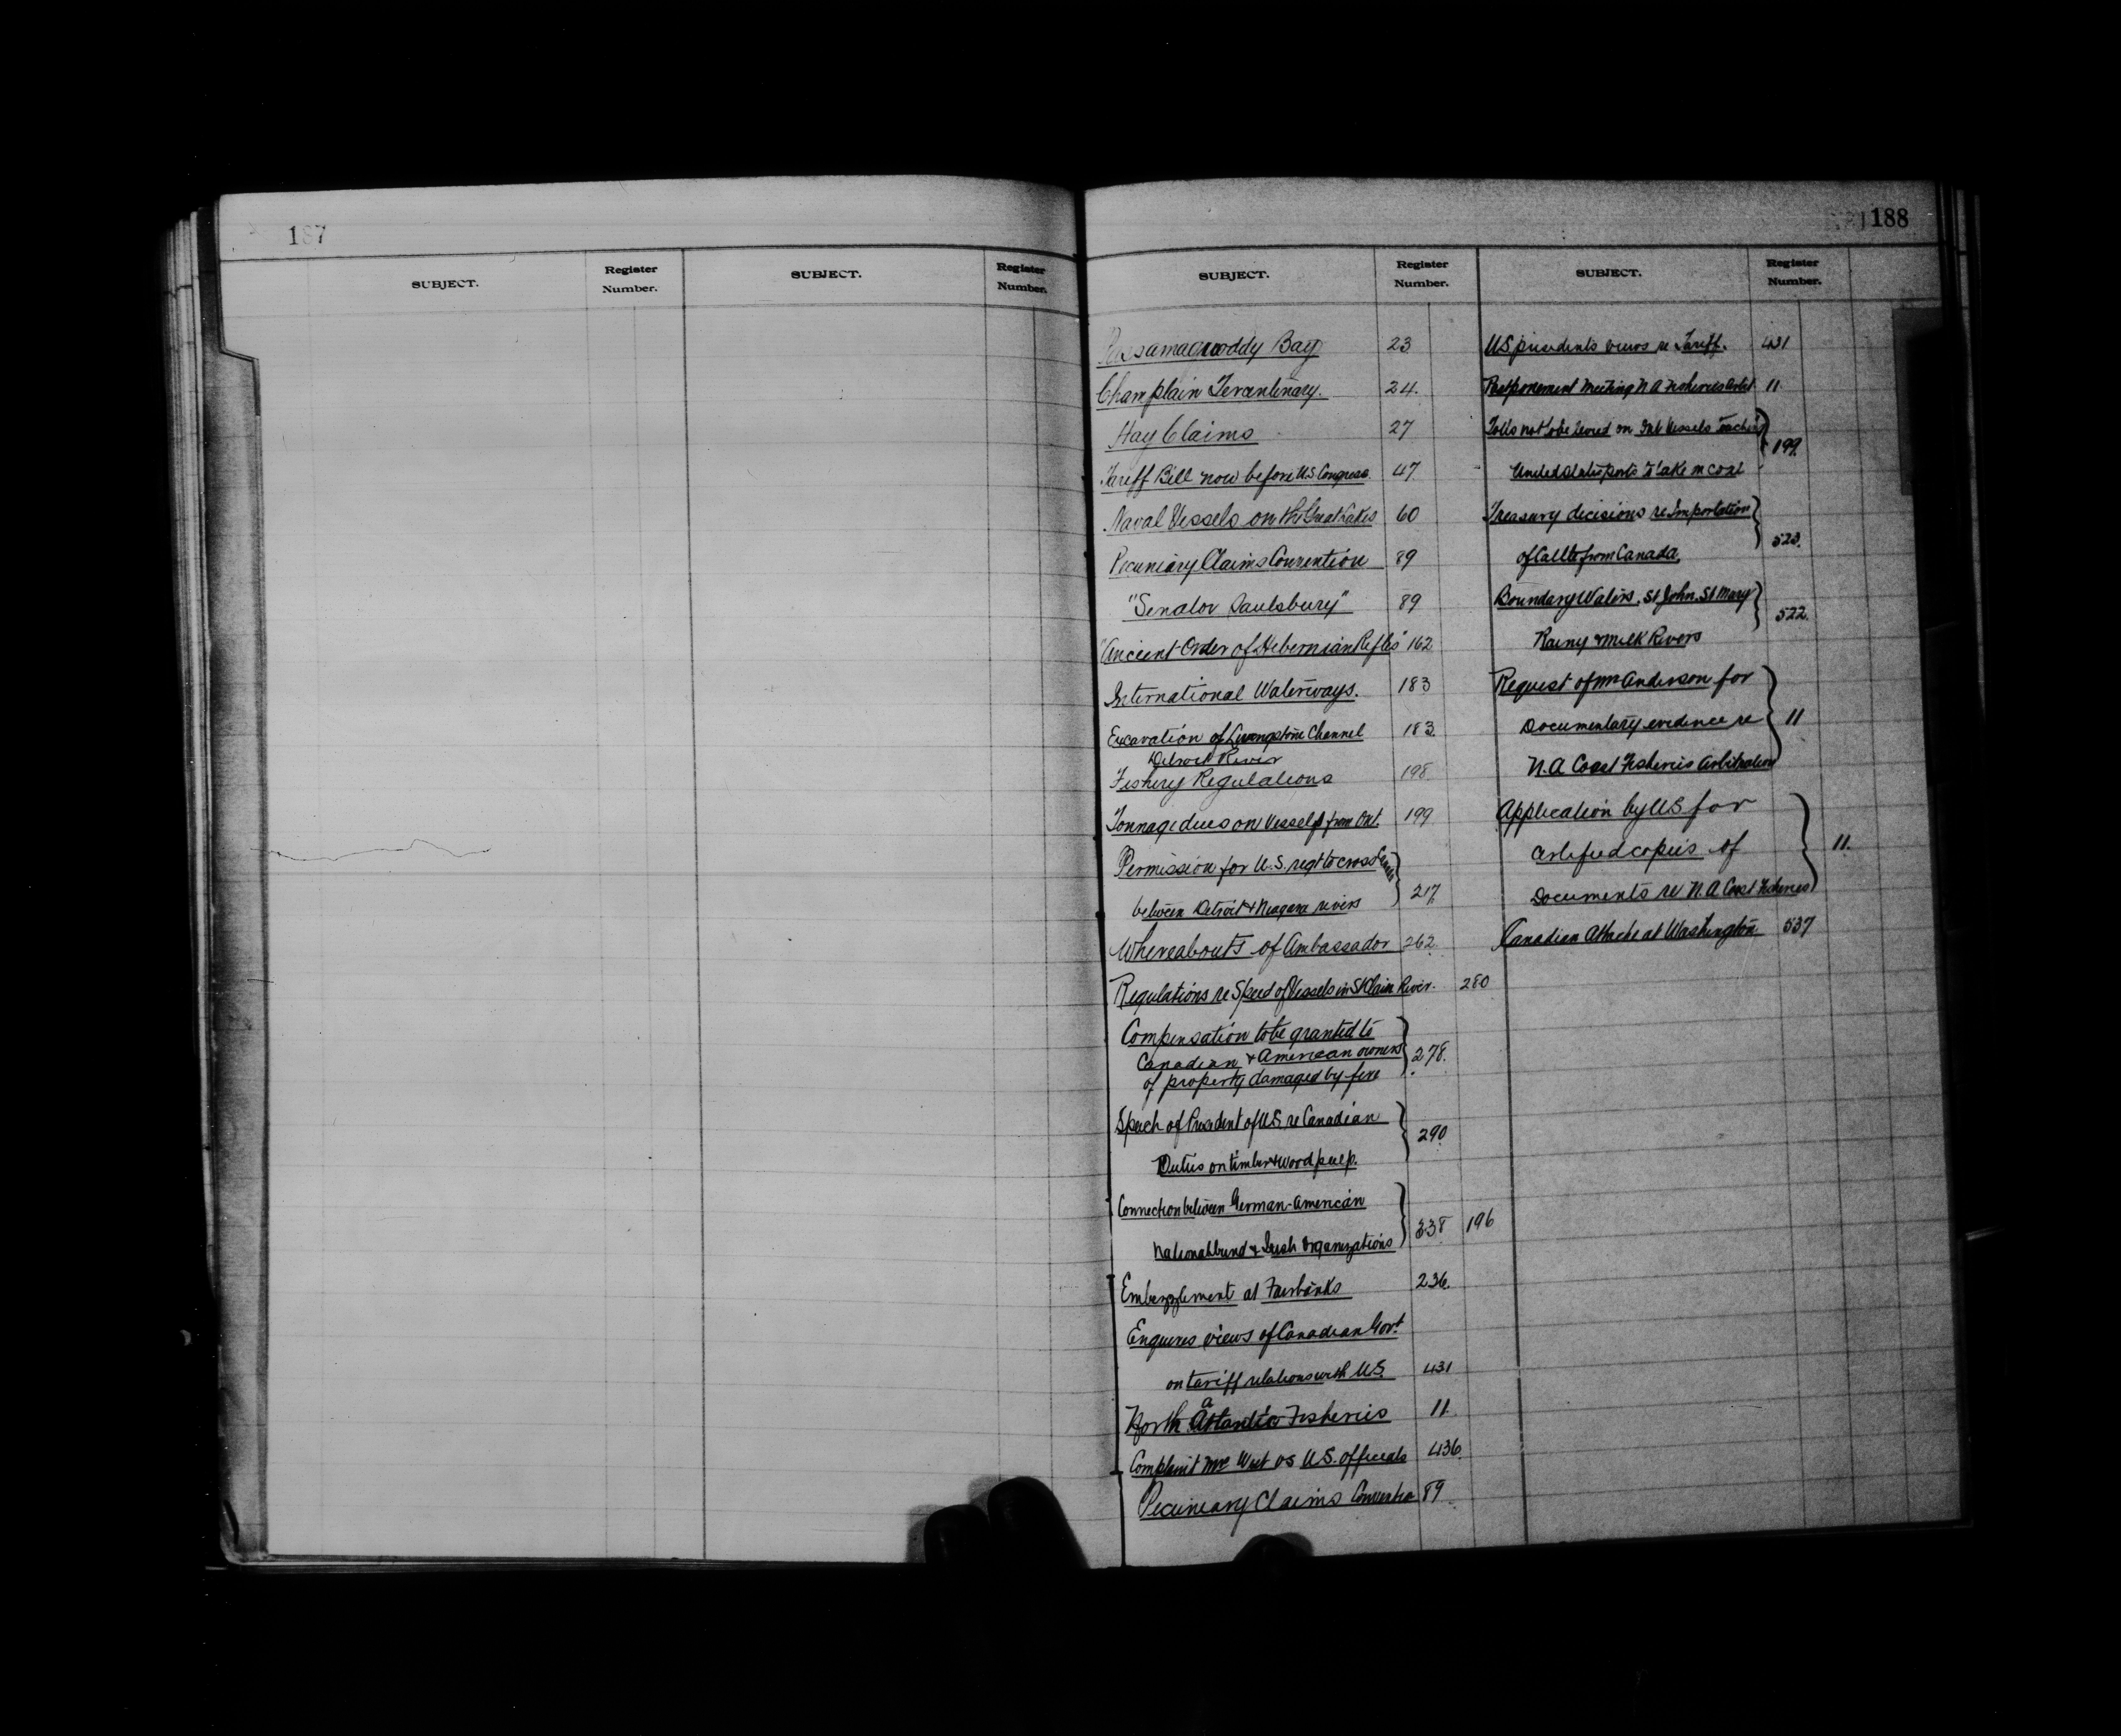 187
SUBJECT.
Register Number.
SUBJECT.
Register Number.
188
SUBJECT.
Register Number.
SUBJECT.
Register Number.
Passamaquoddy Bay 23
Champlain Tercentenary. 24.
Hay Claims 27
Tariff Bill now before U.S Congress. 47
Naval Vessels on the Great Lakes 60
Pecuniary Claims Convention 89
"Senator Saulsbury" 89
"Ancient Order of Hibernian Rifles" 162
International Waterways. 183
Excavation of Livingstone Channel 183.
Detroit River
Fishery Regulations 198
Tonnage dues on Vessels from Ont. 199
Permission for U.S. regt to cross Canada
between Detroit & Niagara rivers 217
Whereabouts of Ambassador 262
Regulations re Speed of Vessels in St Clair River. 280
Compensation to be granted to
Canadian & American owners 278.
of property damaged by fire
Speech of President of U.S. re Canadian
Duties on timber & wood pulp. 290
Connection between German-American
Nationalbund & Irish Organizations 338 196
Embezzlement at Fairbanks 236.
Enquires views of Canadian Govt
on tariff relations with U.S. 431
North Atlantic Fisheries 11
Complaint Mr West vs U.S. officials 436
Pecuniary Claims Convention 89
US presidents views re Tariff. 431
Postponement Meeting N A Fisheries Arbit 11
Tolls not to be levied on Vessels
United States ports to take in coal 199.
Treasury decisions re Importation
of Cattle from Canada. 523.
Boundary Waters. St John, St Mary
Rainy & Milk Rivers 522.
Request of Mr Anderson for
Documentary evidence re 11
N.A Coast Fisheries Arbitration
Application by US for
Certified copies of 11.
Documents re N.A Coast Fisheries
Canadian Attache at Washington 537